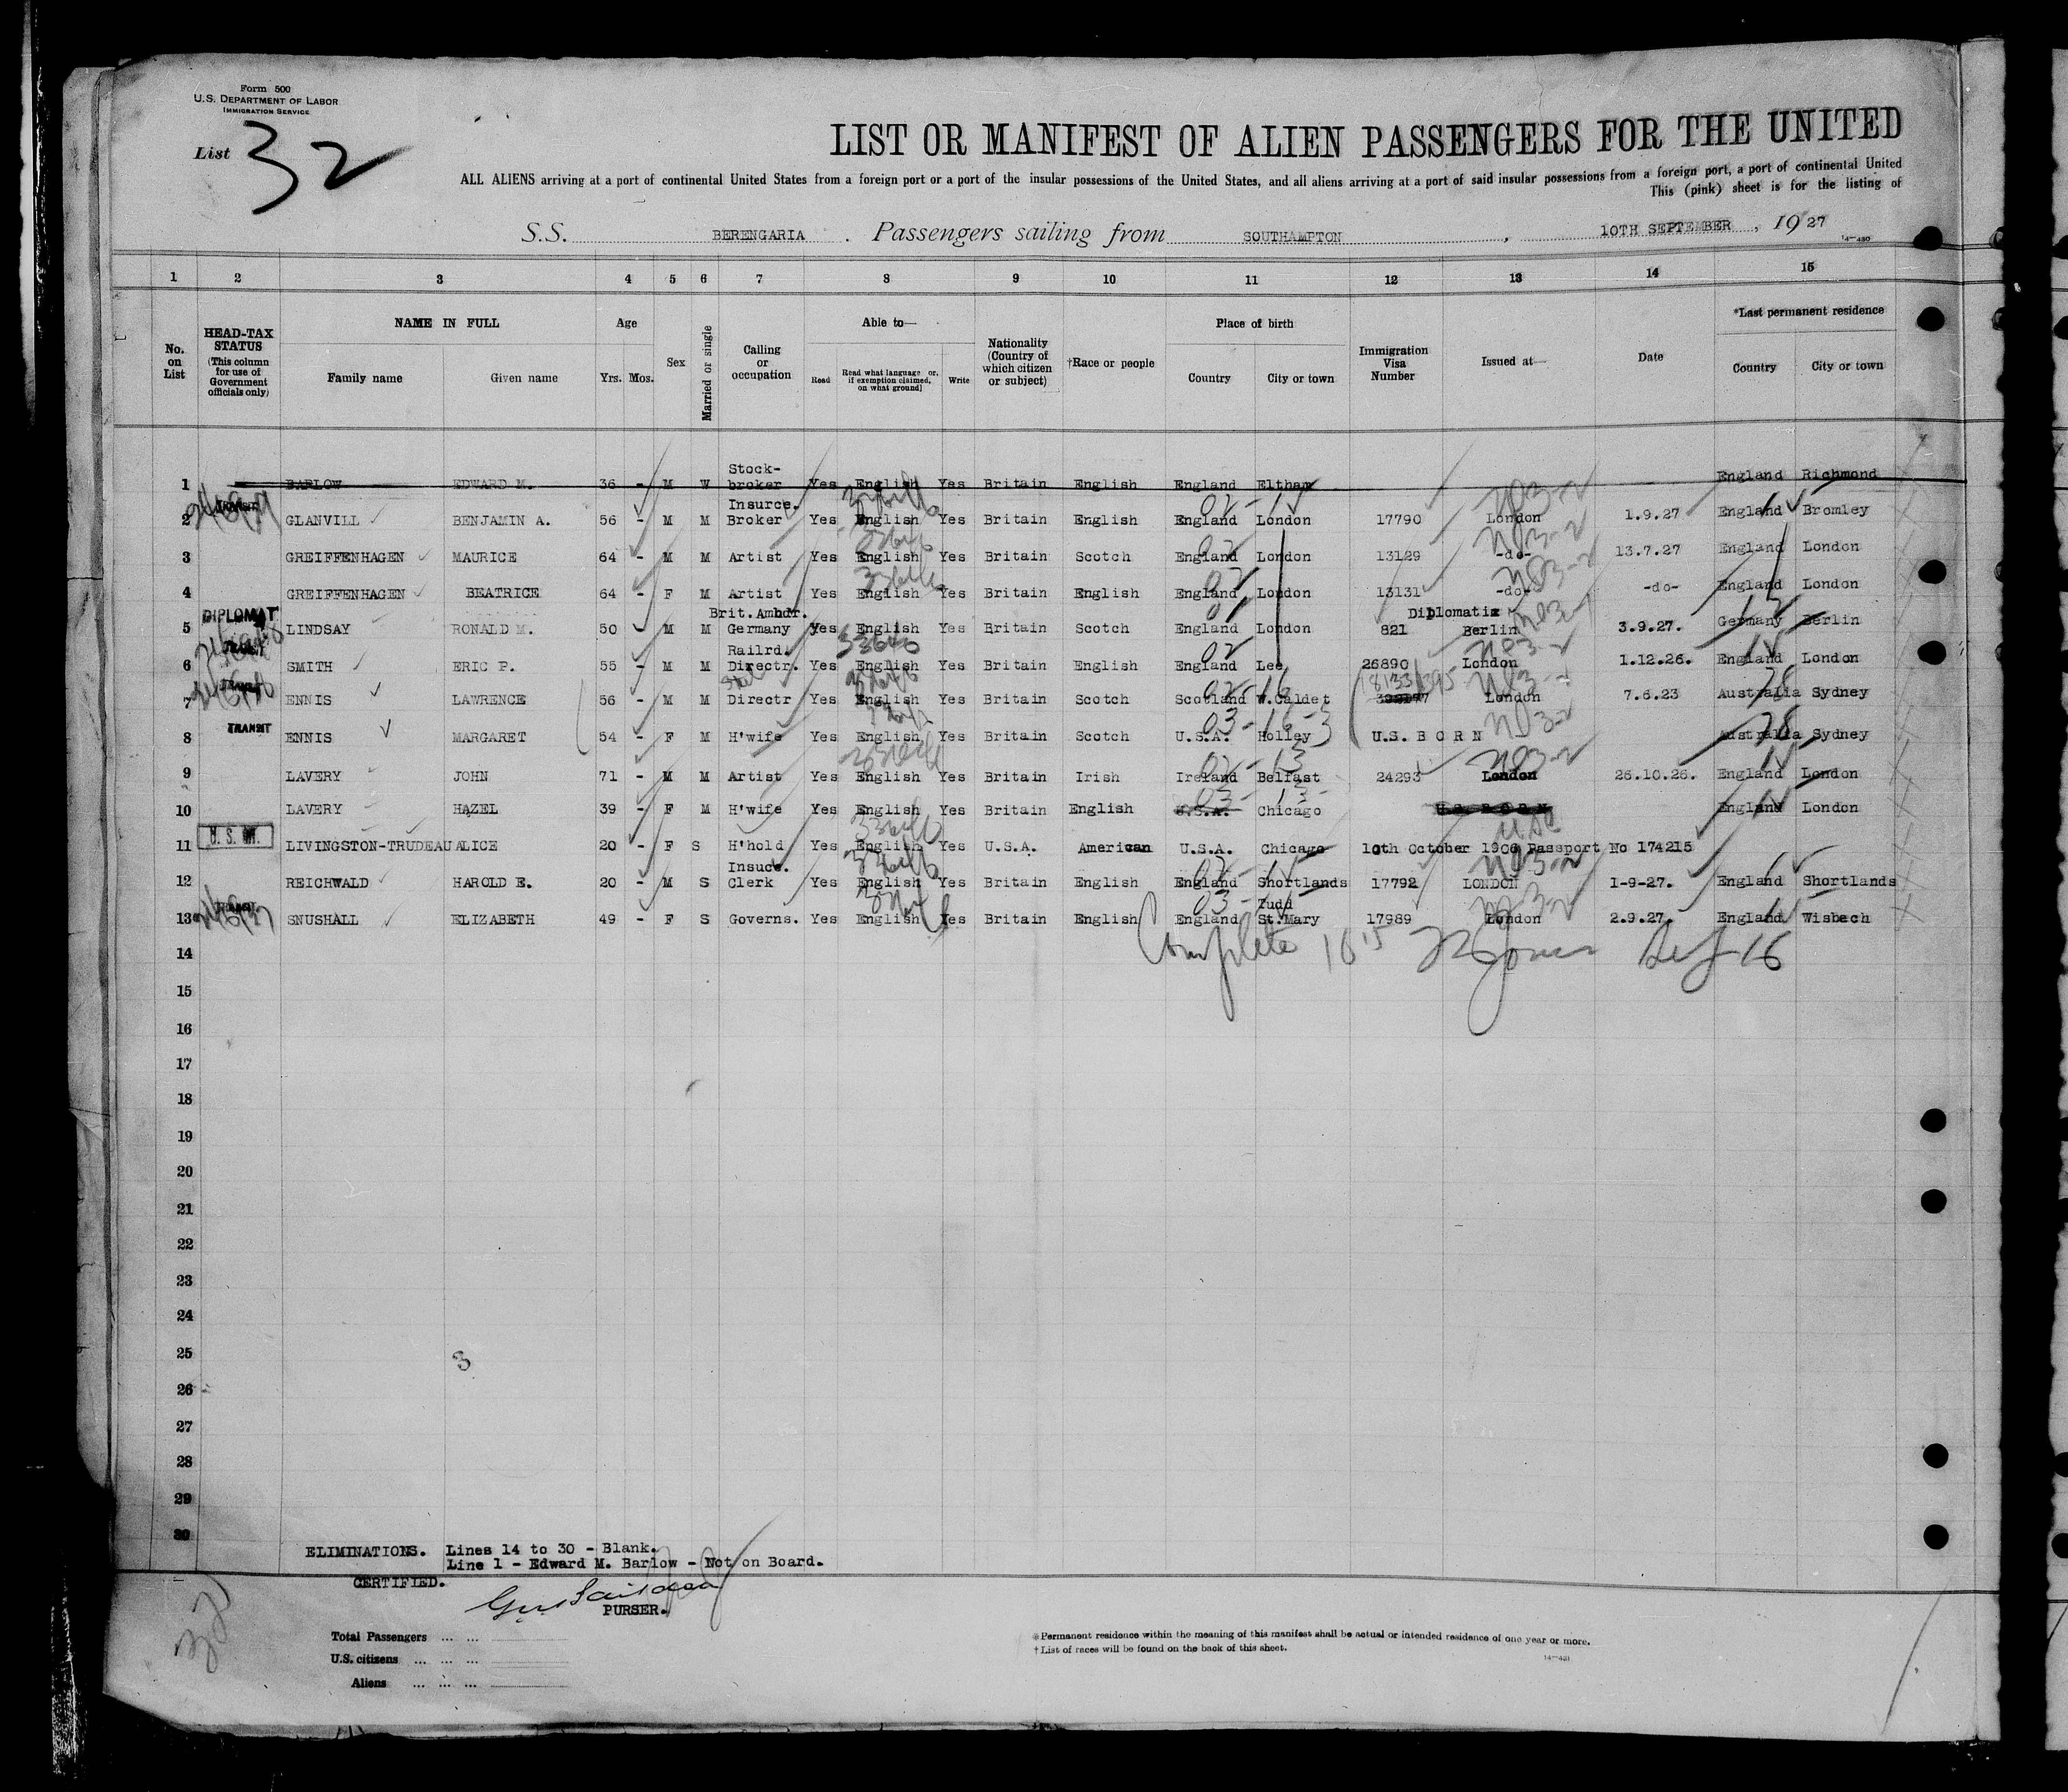 Form 500
U.S. DEPARTMENT OF LABOR
IMMIGRATION SERVICE
List 32
LIST OR MANIFEST OF ALIEN PASSENGERS FOR THE UNITED
ALL ALIENS arriving at a port of continental United States from a foreign port or a port of the insular possessions of the United States, and all aliens arriving at a port of said insular possessions from a foreign port, a port of continental United
This (pink) sheet is for the listing of
S.S. BERENGARIA . Passengers sailing from SOUTHAMPTON , 10TH SEPTEMBER , 1927
14-430
1 2 3 4 5 6 7 8 9 10 11 12 13 14 15
No. on List
HEAD-TAX STATUS (This column for use of Government officials only)
NAME IN FULL
Family name Given name
Age
Yrs. Mos.
Sex
Married or single
Calling or occupation
Able to—
Read Read what language [or, if exemption claimed, on what ground] Write
Nationality (Country of which citizen or subject)
†Race or people
Place of birth
Country City or town
Immigration Visa Number
Issued at—
Date
*Last permanent residence
Country City or town
1 BARLOW EDWARD M. 36 - M W Stock-broker Yes English Yes Britain English England Eltham England Richmond
2 TRANSIT GLANVILL BENJAMIN A. 56 - M M Insurce. Broker Yes English Yes Britain English England London 17790 London 1.9.27 England Bromley
3 GREIFFENHAGEN MAURICE 64 - M M Artist Yes English Yes Britain Scotch England London 13129 -do- 13.7.27 England London
4 GREIFFENHAGEN BEATRICE 64 - F M Artist Yes English Yes Britain English England London 13131 -do- -do- England London
5 DIPLOMAT LINDSAY RONALD M. 50 - M M Brit.Ambdr. Germany Yes English Yes Britain Scotch England London 821 Diplomatic Berlin 3.9.27. Germany Berlin
6 TRANSIT SMITH ERIC P. 55 - M M Railrd. Directr. Yes English Yes Britain English England Lee 26890 London 1.12.26. England London
7 TRANSIT ENNIS LAWRENCE 56 - M M Directr Yes English Yes Britain Scotch Scotland W.Caldet London 7.6.23 Australia Sydney
8 TRANSIT ENNIS MARGARET 54 - F M H'wife Yes English Yes Britain Scotch U.S.A. Holley U.S. BORN Australia Sydney
9 LAVERY JOHN 71 - M M Artist Yes English Yes Britain Irish Ireland Belfast 24293 London 26.10.26. England London
10 LAVERY HAZEL 39 - F M H'wife Yes English Yes Britain English U.S.A. Chicago U.S. BORN England London
11 LIVINGSTON-TRUDEAU ALICE 20 - F S H'hold Yes English Yes U.S.A. American U.S.A. Chicago 10th October 1906 Passport No 174215
12 REICHWALD HAROLD E. 20 - M S Insuce. Clerk Yes English Yes Britain English England Shortlands 17792 LONDON 1-9-27. England Shortlands
13 TRANSIT SNUSHALL ELIZABETH 49 - F S Governs. Yes English Yes Britain English England Tudd St.Mary 17989 London 2.9.27. England Wisbech
Complete 10 15 Jones Sep 16
14
15
16
17
18
19
20
21
22
23
24
25
26
27
28
29
30
3
ELIMINATIONS. Lines 14 to 30 - Blank.
Line 1 - Edward M. Barlow - Not on Board.
CERTIFIED.
PURSER.
32
Total Passengers ... ...
U.S. citizens ... ... ...
Aliens ... ... ...
*Permanent residence within the meaning of this manifest shall be actual or intended residence of one year or more.
†List of races will be found on the back of this sheet.
14-431